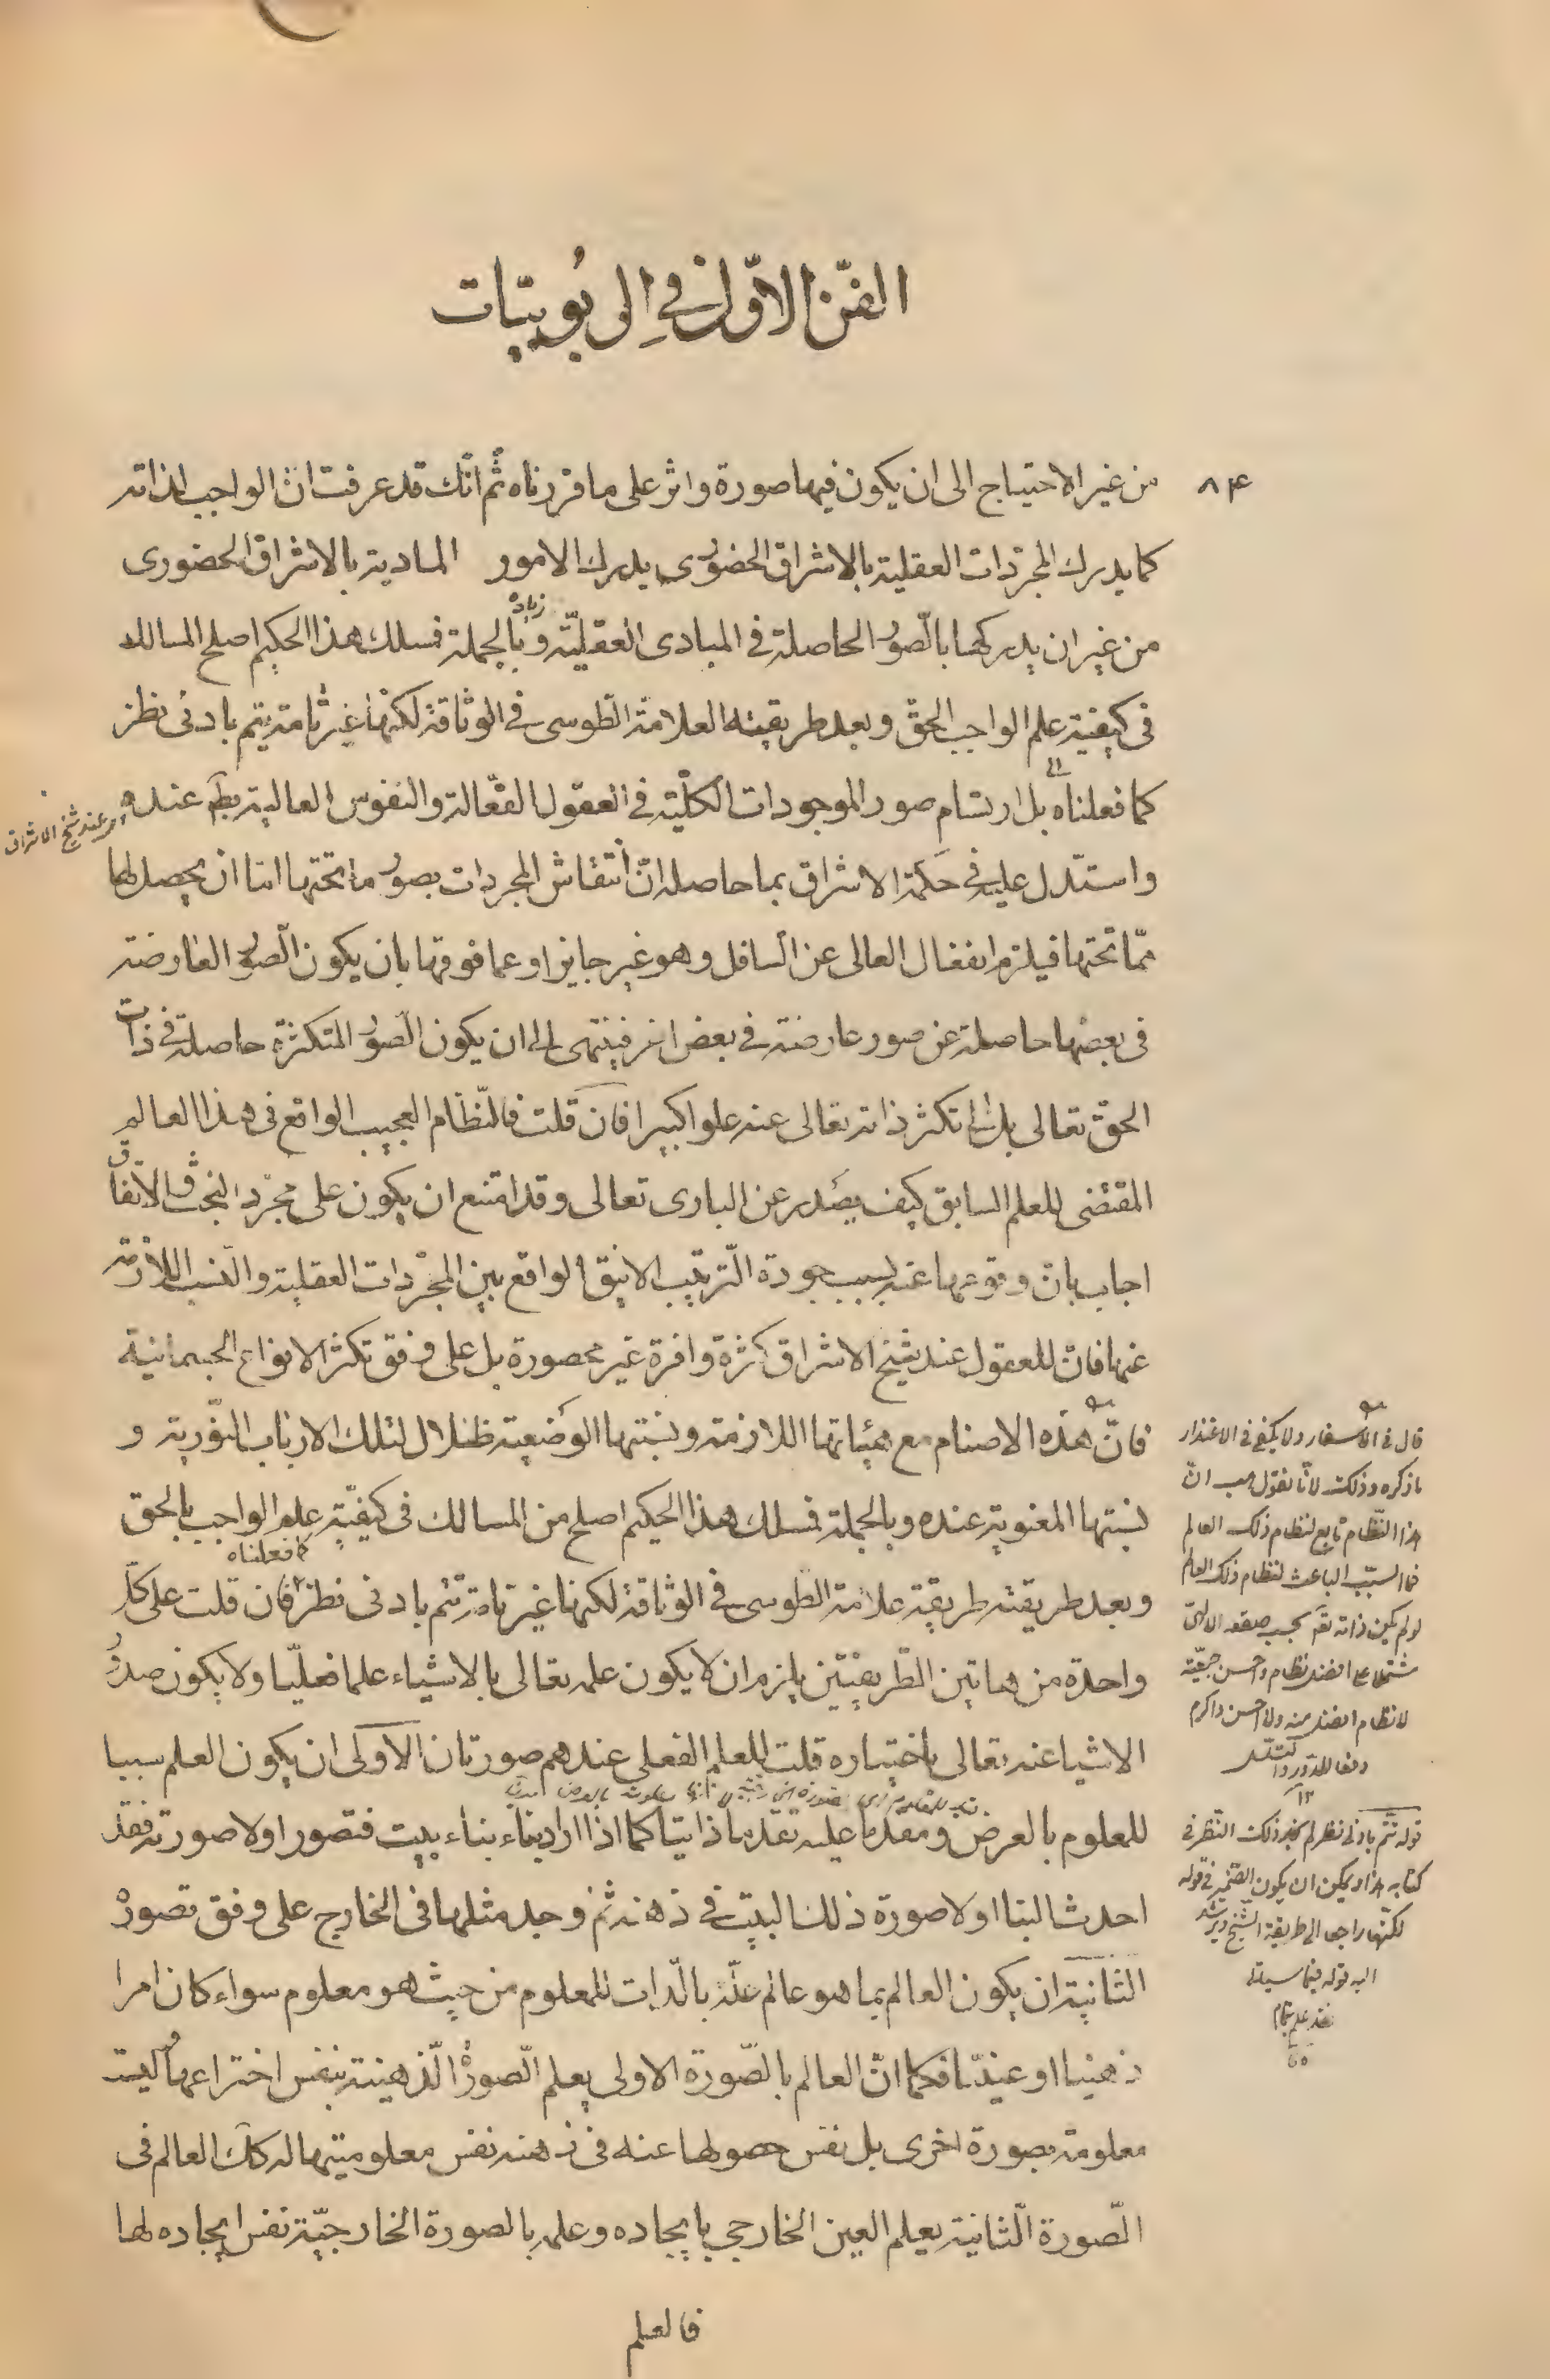 الفنّ الاوّل في الربوبيّات
٨٤
من غير الاحتياج الى ان يكون فيها صورة واثر على ما قررناه ثمّ انّك قد عرفت انّ الواجب لذاته
كما يدرك المجرّدات العقلية بالاشراق الحضورى يدرك الامور المادية بالاشراق الحضورى
من غير ان يدركها بالصّور الحاصلة في المبادى العقليّة وبالجملة فسلك هذا الحكيم اصلح المسالك
زياده
فى كيفية علم الواجب الحقّ وبعد طريقته العلامة الطّوسى في الوثاقة لكنّها غير تامة يتم بادنى نظر
كما فعلناه بل ارتسام صور الموجودات الكلّية في العقول الفعّالة والنفوس العالية بط عنده
اى عند شيخ الاشراق
واستدّل عليه في حكمة الاشراق بما حاصله انّ انتقاش المجردات بصور ما تحتها امّا ان يحصل لها
ممّا تحتها فيلزم انفعال العالى عن السافل وهو غير جايز او عما فوقها بان يكون الصّور العارضة
فى بعضها حاصلة عن صور عارضة في بعض اخر فينتهى الى ان يكون الصّور المتكثرة حاصلة في ذات
الحقّ تعالى بل الى تكثر ذاته تعالى عنه علوا كبيرا فان قلت فالنّظام العجيب الواقع فى هذا العالم
المقتضى للعلم السابق كيف يصدر عن البارى تعالى وقد امتنع ان يكون على مجرّد البخت والاتّفاق
اجاب بان وقوعها عنه بسبب جودة التّرتيب الانيق الواقع بين المجرّدات العقلية والنسب اللازمة
عنها فانّ للعقول عند شيخ الاشراق كثرة وافرة غير محصورة بل على وفق تكثر الانواع الجسمانية
فانّ هذه الاصنام مع هيئاتها اللازمة ونسبتها الوضعية ظلال لتلك الارباب النّورية و
نسبتها المعنوية عنده وبالجملة فسلك هذا الحكيم اصلح من المسالك فى كيفيّة علم الواجب بالحق
وبعد طريقته طريقة علامة الطّوسى في الوثاقة لكنها غير تامة تتم بادنى نظر فان قلت على كلّ
كما فعلناه
واحدة من هاتين الطّريقتين يلزم ان لا يكون علمه تعالى بالاشياء علما فعليّا ولا يكون صدور
الاشيا عنه تعالى باختياره قلت للعلم الفعلى عندهم صورتان الاولى ان يكون العلم سببا
للمعلوم بالعرض ومقدما عليه تقدما ذاتيا كما اذا اراد بنّاء بناء بيت فتصور اولا صورته فقد
احدث البنا اولا صورة ذلك البيت في ذهنه ثمّ وجد مثلها في الخارج على وفق تصوره
الثانية ان يكون العالم بما هو عالم علّة بالذات للمعلوم من حيث هو معلوم سواء كان امرا
ذهنيا او عينيّا فكما انّ العالم بالصّورة الاولى يعلم الصّورة الذهنية بنفس اختراعها ليست
معلومة بصورة اخرى بل نفس حصولها عنه فى ذهنه نفس معلوميتها له كذلك العالم فى
الصّورة الثانية يعلم العين الخارجي بايجاده وعلمه بالصورة الخارجيّة نفس ايجاده لها
فالعلم
قال فى الاسفار ولا يكفى فى الاعتذار
ما ذكره وذلك لانّا نقول هب انّ
هذا النّظام تابع لنظام ذلك العالم
فما السبب الباعث لنظام ذلك العالم
لو لم يكن ذاته تعم بحسب صقعه الالهى
مشتملا على افضل نظام واحسن
لا نظام افضل منه ولا احسن واكرم
دفعا للدّور والتسلسل
١٢
قوله تتم بادنى نظر لم يذكر ذلك النّظر فى
كتابه هذا ويمكن ان يكون الضّمير فى قوله
لكنّها راجعا الى طريقة الشّيخ ويرشد
اليه قوله فيما سيأتى